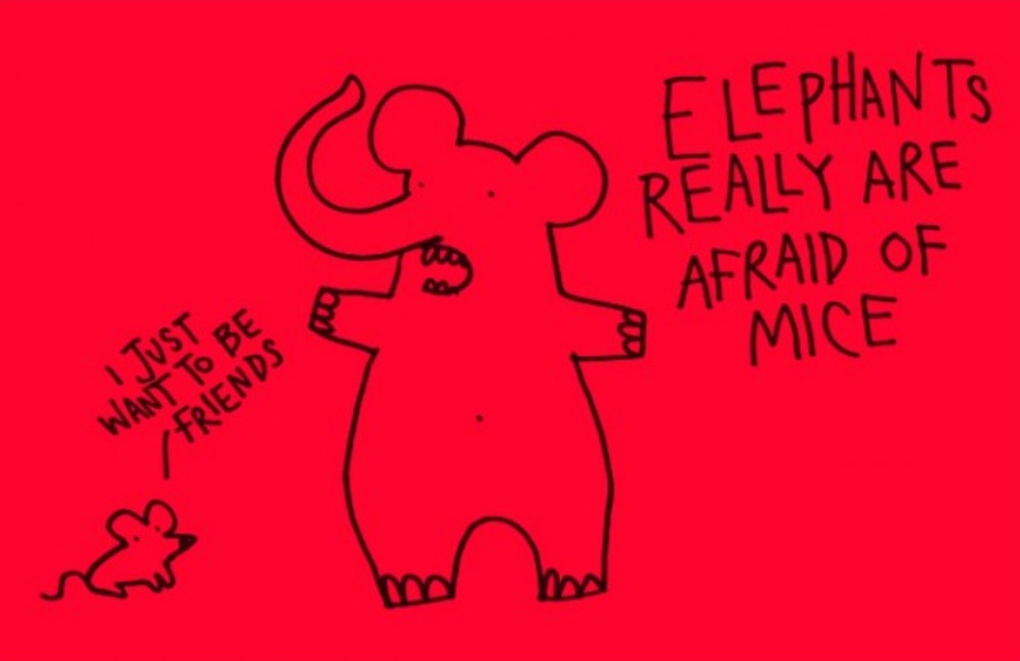 ELEPHANTS
REALLY ARE
AFRAID OF
MICE
I JUST
WANT TO BE
FRIENDS